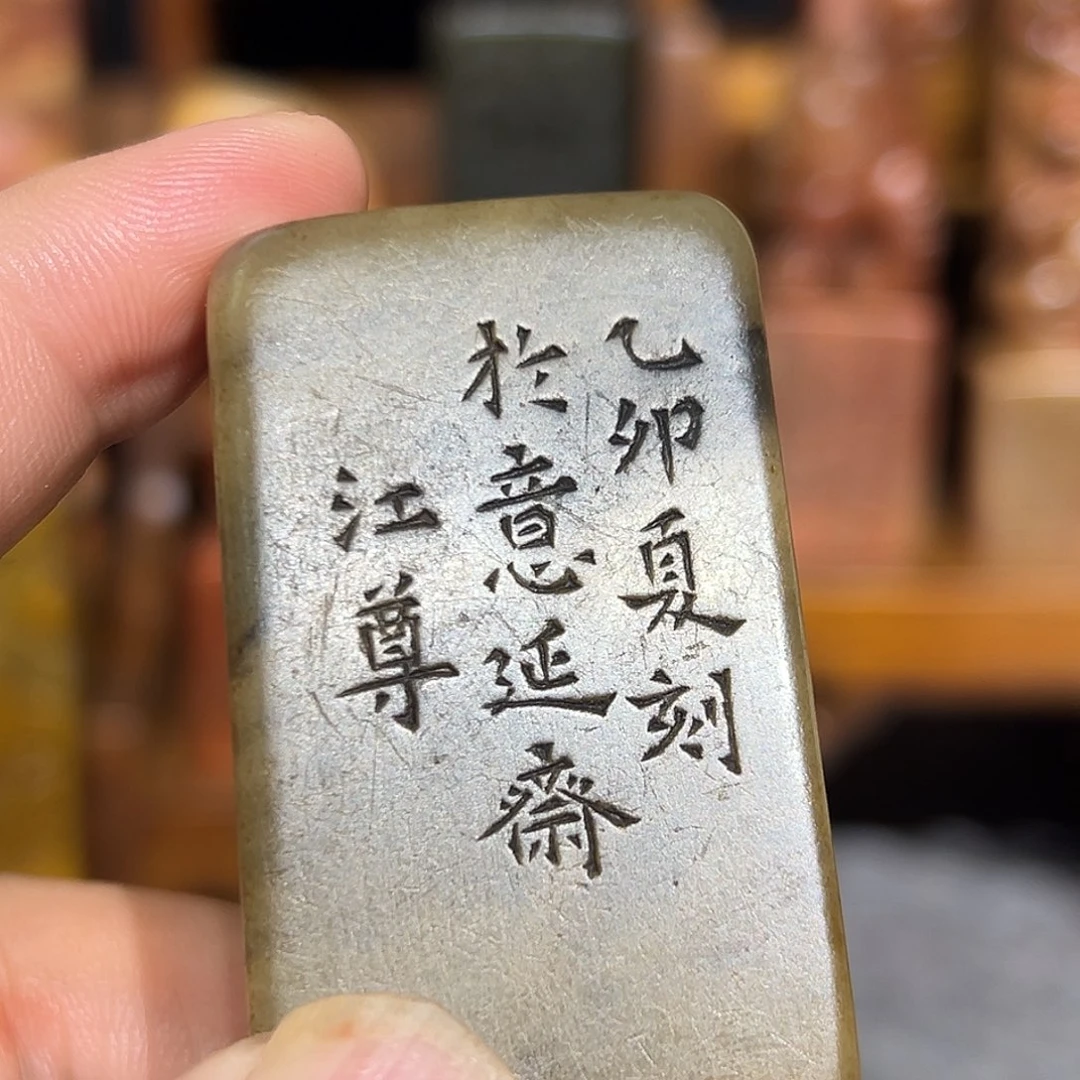 乙卯夏刻
於意延齋
江尊